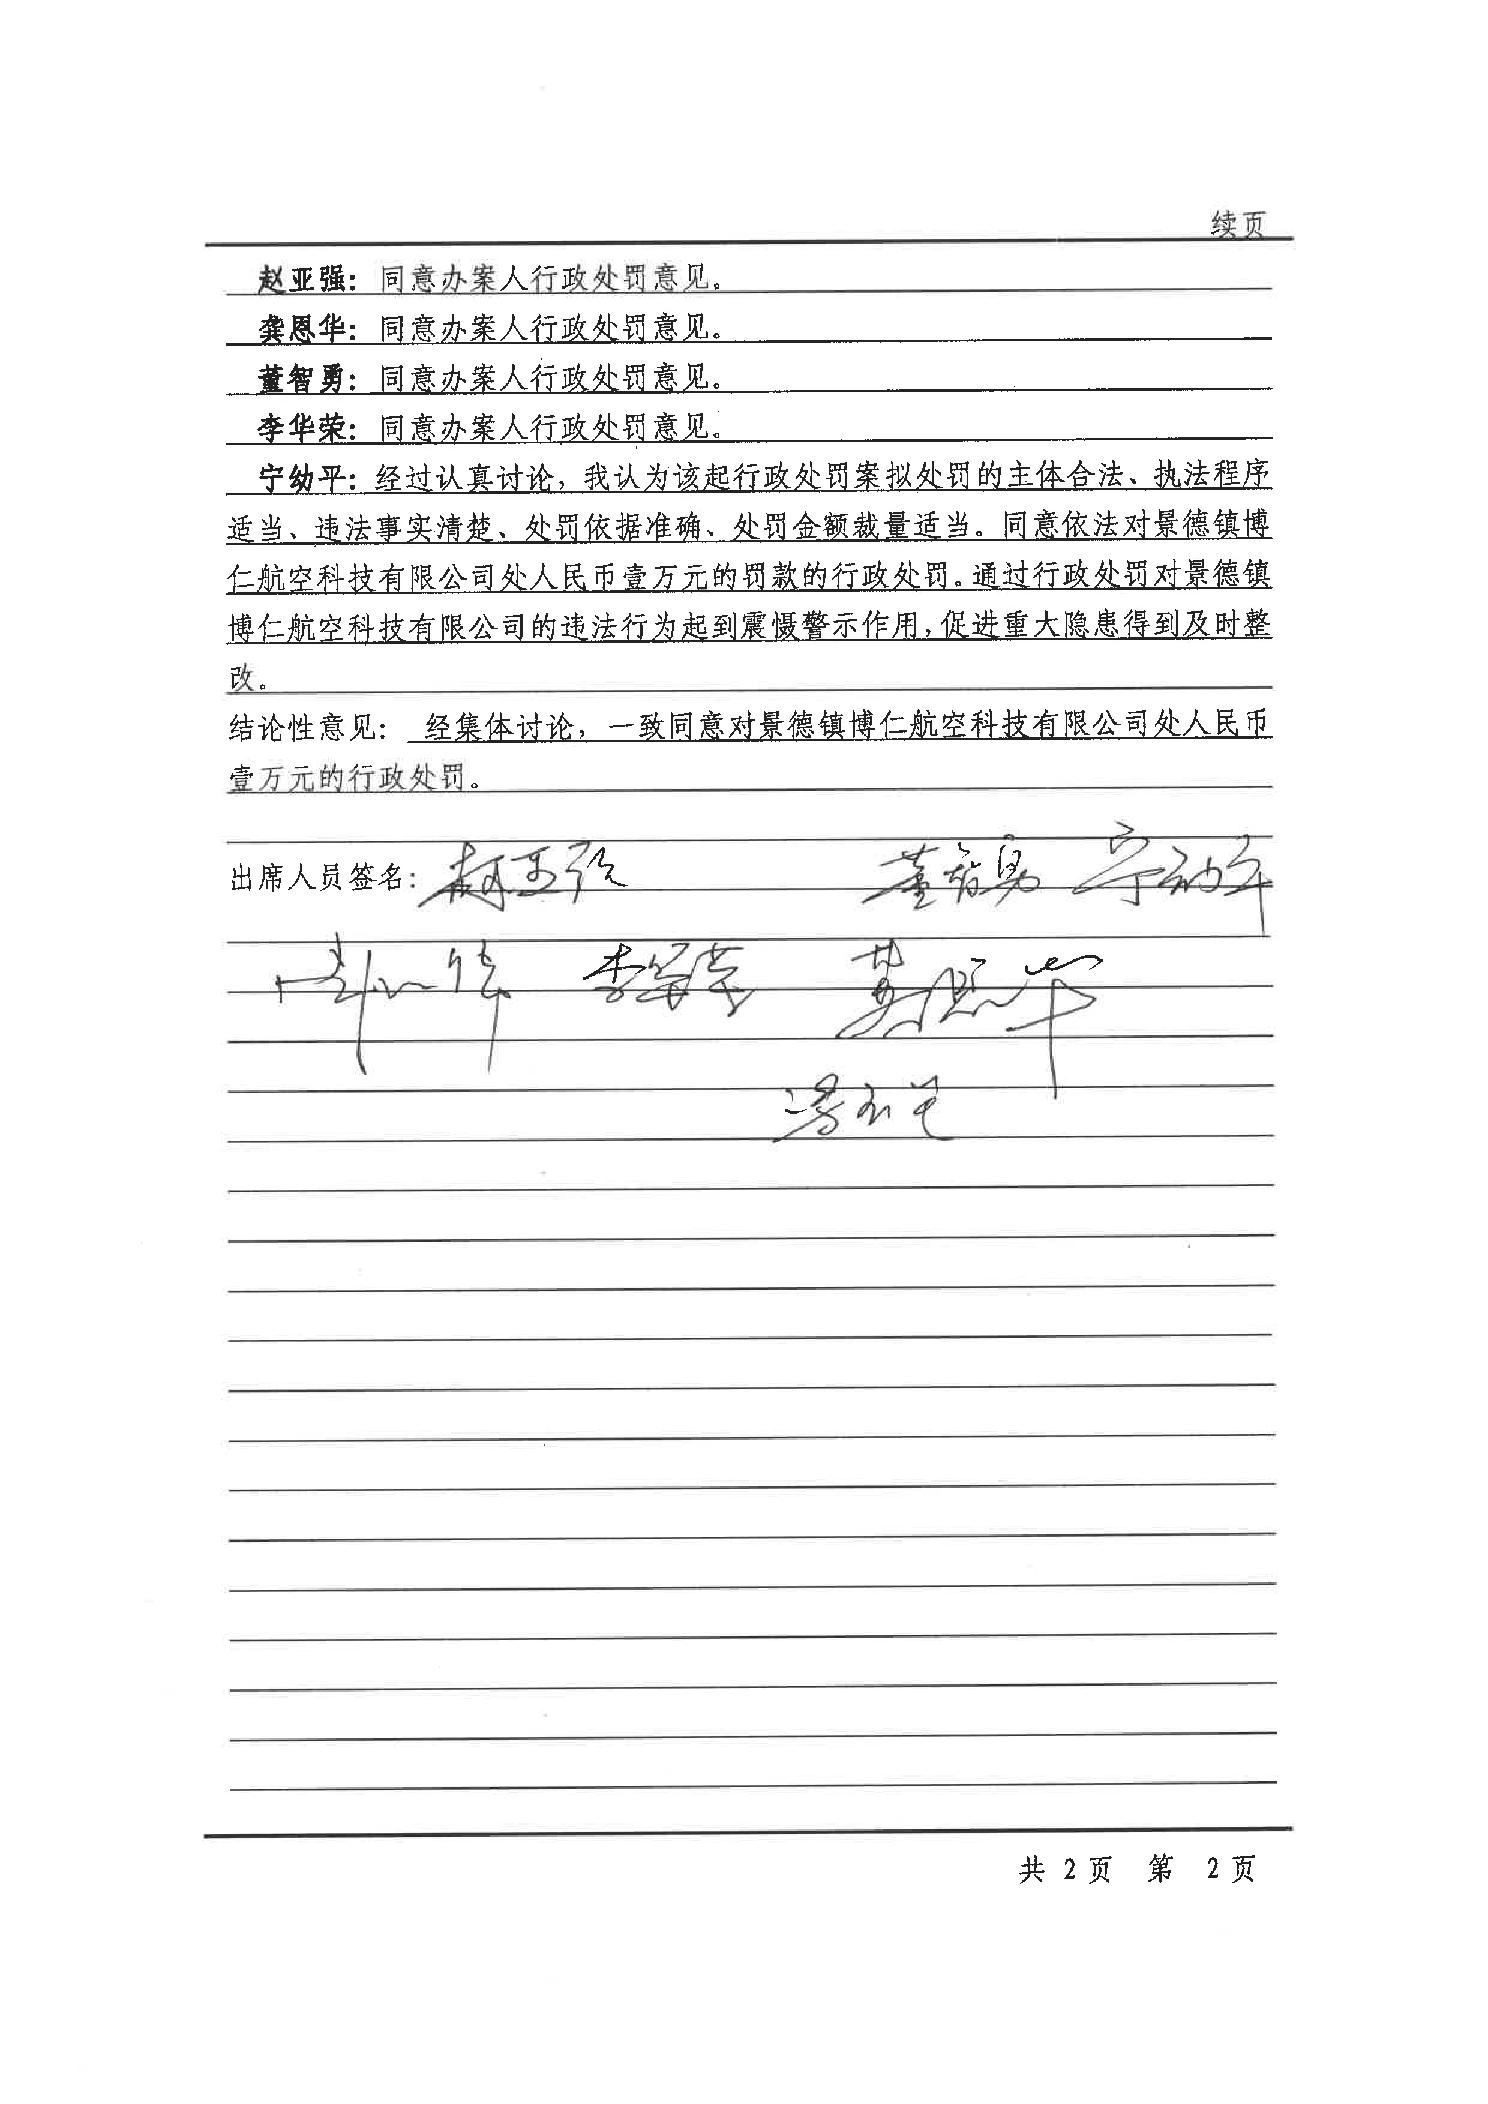 续页
赵亚强：同意办案人行政处罚意见。
龚恩华：同意办案人行政处罚意见。
董智勇：同意办案人行政处罚意见。
李华荣：同意办案人行政处罚意见。
宁幼平：经过认真讨论，我认为该起行政处罚案拟处罚的主体合法、执法程序
适当、违法事实清楚、处罚依据准确、处罚金额裁量适当。同意依法对景德镇博
仁航空科技有限公司处人民币壹万元的罚款的行政处罚。通过行政处罚对景德镇
博仁航空科技有限公司的违法行为起到震慑警示作用，促进重大隐患得到及时整
改。
结论性意见： 经集体讨论，一致同意对景德镇博仁航空科技有限公司处人民币
壹万元的行政处罚。
出席人员签名：赵亚强 董智勇 宁幼平
李华荣 龚恩华
共 2 页 第 2 页